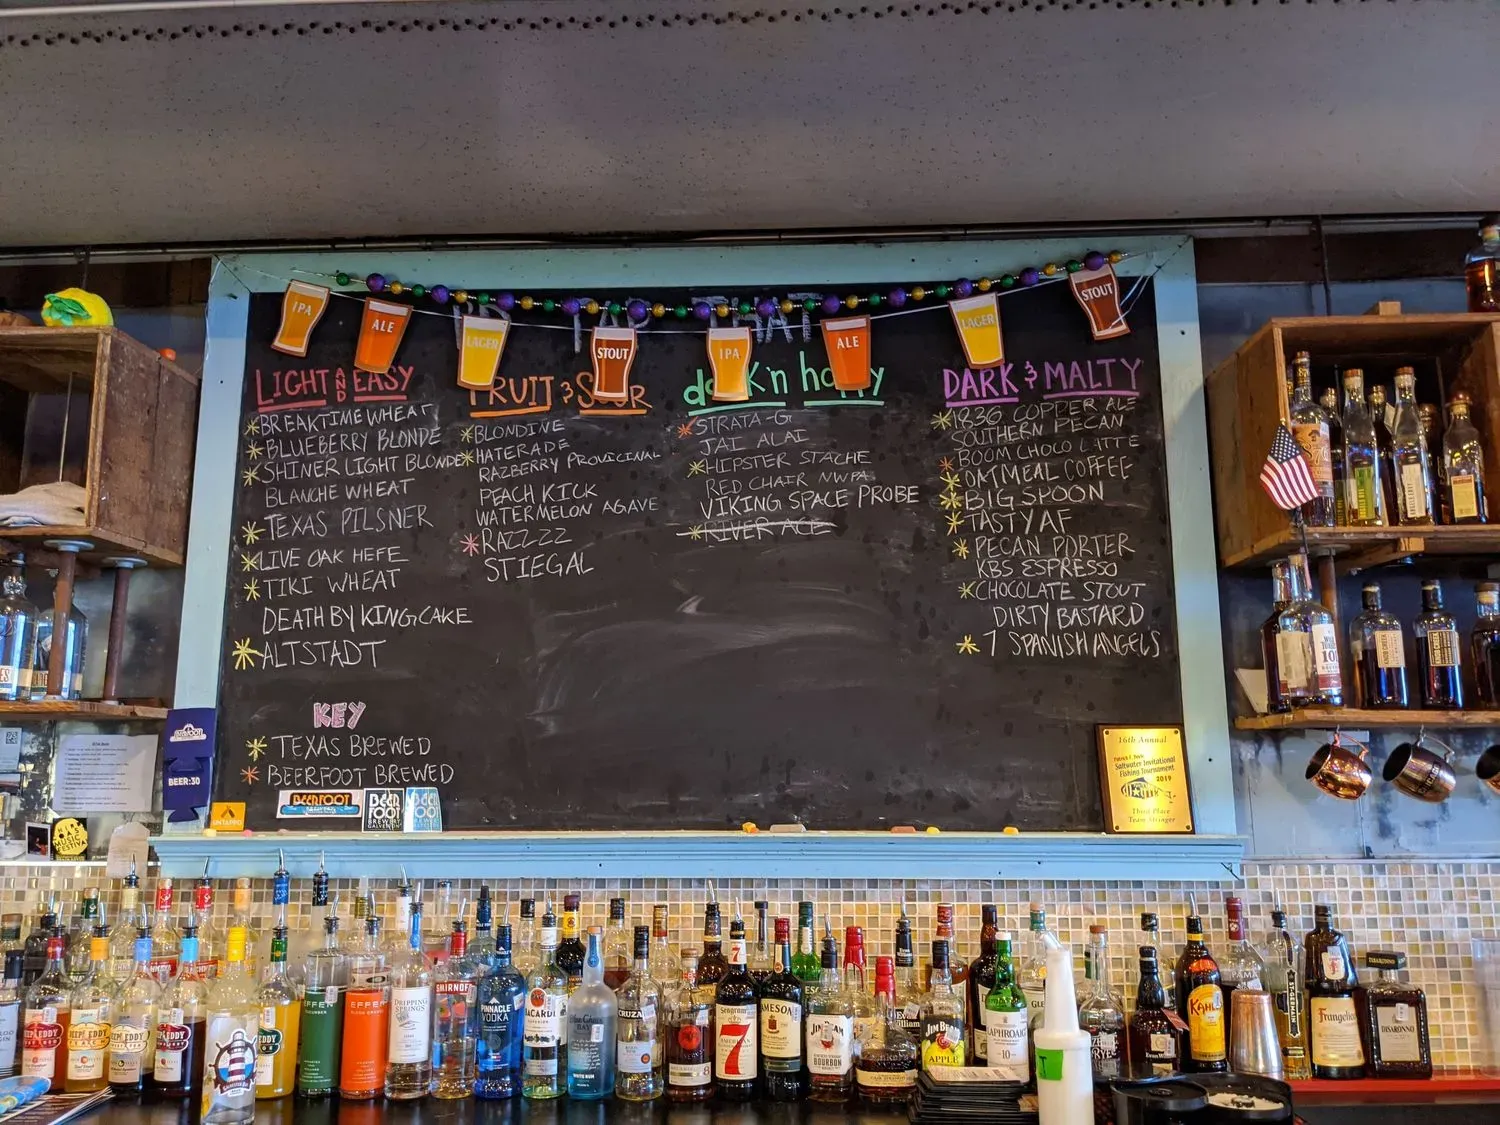 IPA
ALE
LAGER
STOUT
IPA
ALE
LAGER
STOUT
LIGHT AND EASY
BREAKTIME WHEAT
BLUEBERRY BLONDE
SHINER LIGHT BLONDE
BLANCHE WHEAT
TEXAS PILSNER
LIVE OAK HEFE
TIKI WHEAT
DEATH BY KING CAKE
ALTSTADT
KEY
TEXAS BREWED
BEERFOOT BREWED
FRUIT & SOUR
BLONDINE
HATERADE
RAZBERRY PROVICINAL
PEACH KICK
WATERMELON AGAVE
RAZZZZ
STIEGAL
STRATA-G
JAI ALAI
HIPSTER STACHE
RED CHAIR NWPA
VIKING SPACE PROBE
RIVER ACE
DARK & MALTY
1836 COPPER ALE
SOUTHERN PECAN
BOOM CHOCOLATTE
OATMEAL COFFEE
BIG SPOON
TASTY AF
PECAN PORTER
KBS ESPRESSO
CHOCOLATE STOUT
DIRTY BASTARD
7 SPANISH ANGELS
BEERFOOT
BEER
FOOT
BREWERY
GALVESTON
BEER:30
UNTAPPD
MUSIC
FESTIVAL
16th Annual
Saltwater Invitational
Fishing Tournament
2019
Third Place
Team Stringer
101
DEEP EDDY
DEEP EDDY
DEEP EDDY
DEEP EDDY
EFFEN
EFFEN
DRIPPING
SPRINGS
SMIRNOFF
PINNACLE
VODKA
BACARDI
CRUZAN
Seagram's
7
AMERICAN
JAMESON
JIM BEAM
BOURBON
JIM BEAM
APPLE
LAPHROAIG
10
Evan Williams
KAHLÚA
Frangelico
DISARONNO